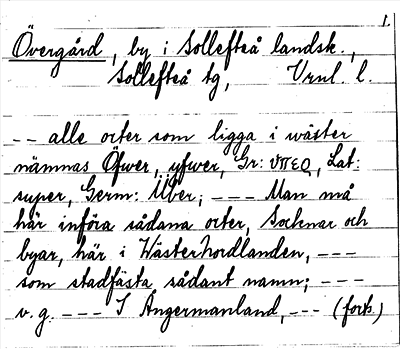 1.
Övergård, by i Sollefteå landsk.,
Sollefteå tg, Vrnl. l.
-- alle orter som ligga i wäster
nämnas Öfwer, yfwer, Gr: υπερ, Lat:
super, Germ: Über; --- Man må
här införa sådana orter, Socknar och
byar, här i WästerNordlanden, ---
som stadfästa sådant namn; ---
v.g. --- I Ångermanland, --- (forts.)